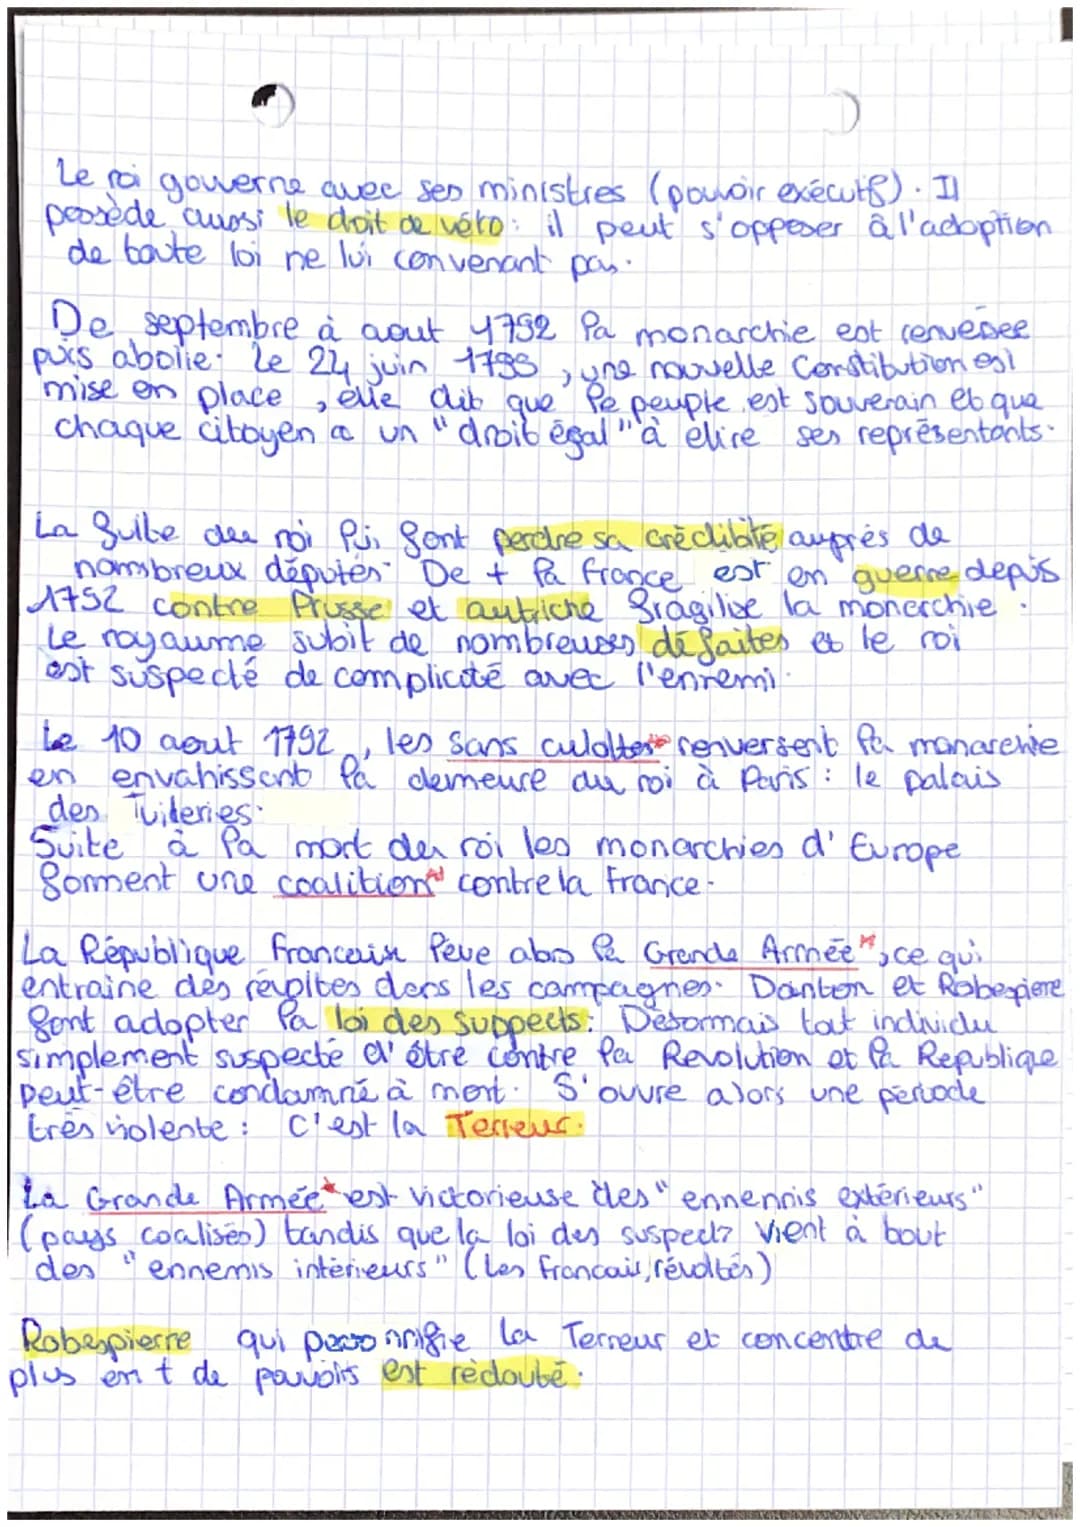 Le roi gouverne avec ses ministres (pouvoir exécutif). Il
possède aussi le droit de véto : il peut s'opposer à l'adoption
de toute loi ne lui convenant pas.
De septembre à aout 1792 la monarchie est renversee
puis abolie. Le 24 juin 1793, une nouvelle Constitution est
mise en place, elle dit que le peuple est souverain et que
chaque citoyen a un "droit égal" à elire ses représentants.
La fuite du roi lui font perdre sa crédibité auprés de
nombreux députés. De + la france est en guerre depuis
1792 contre Prusse et autriche fragilise la monarchie.
Le royaume subit de nombreuses défaites et le roi
est suspecté de complicité avec l'ennemi.
Le 10 aout 1792, les sans culottes* renversent la monarchie
en envahissant la demeure du roi à Paris : le palais
des Tuileries.
Suite à la mort du roi les monarchies d'Europe
forment une coalition* contre la France.
La République Francaise lève alors la Grande Armée*, ce qui
entraine des révoltes dans les campagnes. Danton et Robespierre
font adopter la loi des suspects : Désormais tout individu
simplement suspecté d'être contre la Revolution et la Republique
peut-être condamné à mort. S'ouvre alors une periode
très violente : C'est la Terreur.
La Grande Armée* est victorieuse des "ennennis extérieurs"
(pays coalisés) tandis que la loi des suspects vient à bout
des "ennemis intérieurs" (Les francais révoltés)
Robespierre qui personnifie la Terreur et concentre de
plus en + de pouvoirs est redouté.